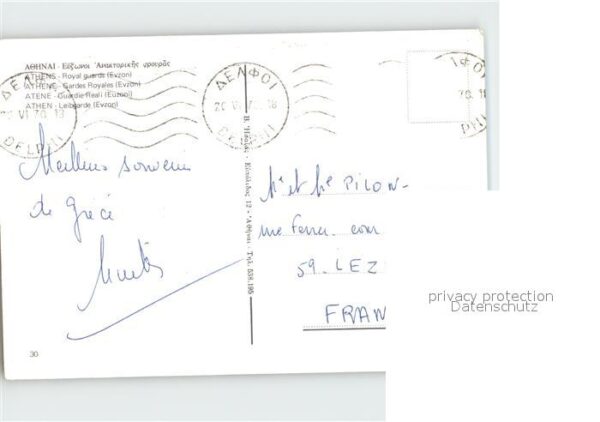 ΑΘΗΝΑΙ - Εὔζωνοι Ἀνακτορικῆς φρουρᾶς
ATHENS - Royal guards (Evzon)
ATHENE - Gardes Royales (Evzon)
ATENE - Guardie Reali (Euzoni)
ATHEN - Leibgarde (Evzon)
ΔΕΛΦΟΙ
20 VI 70. 18
DELPHI
ΔΕΛΦΟΙ
20 VI 70. 18
DELPHI
ΛΦΟΙ
70. 18
PHI
Meilleurs souvenirs
de Grèce
Β. 12 - Ἀθῆναι - Τηλ. 538.195
Mr et Me PILON
rue
59. LEZ
FRAN
30
privacy protection
Datenschutz